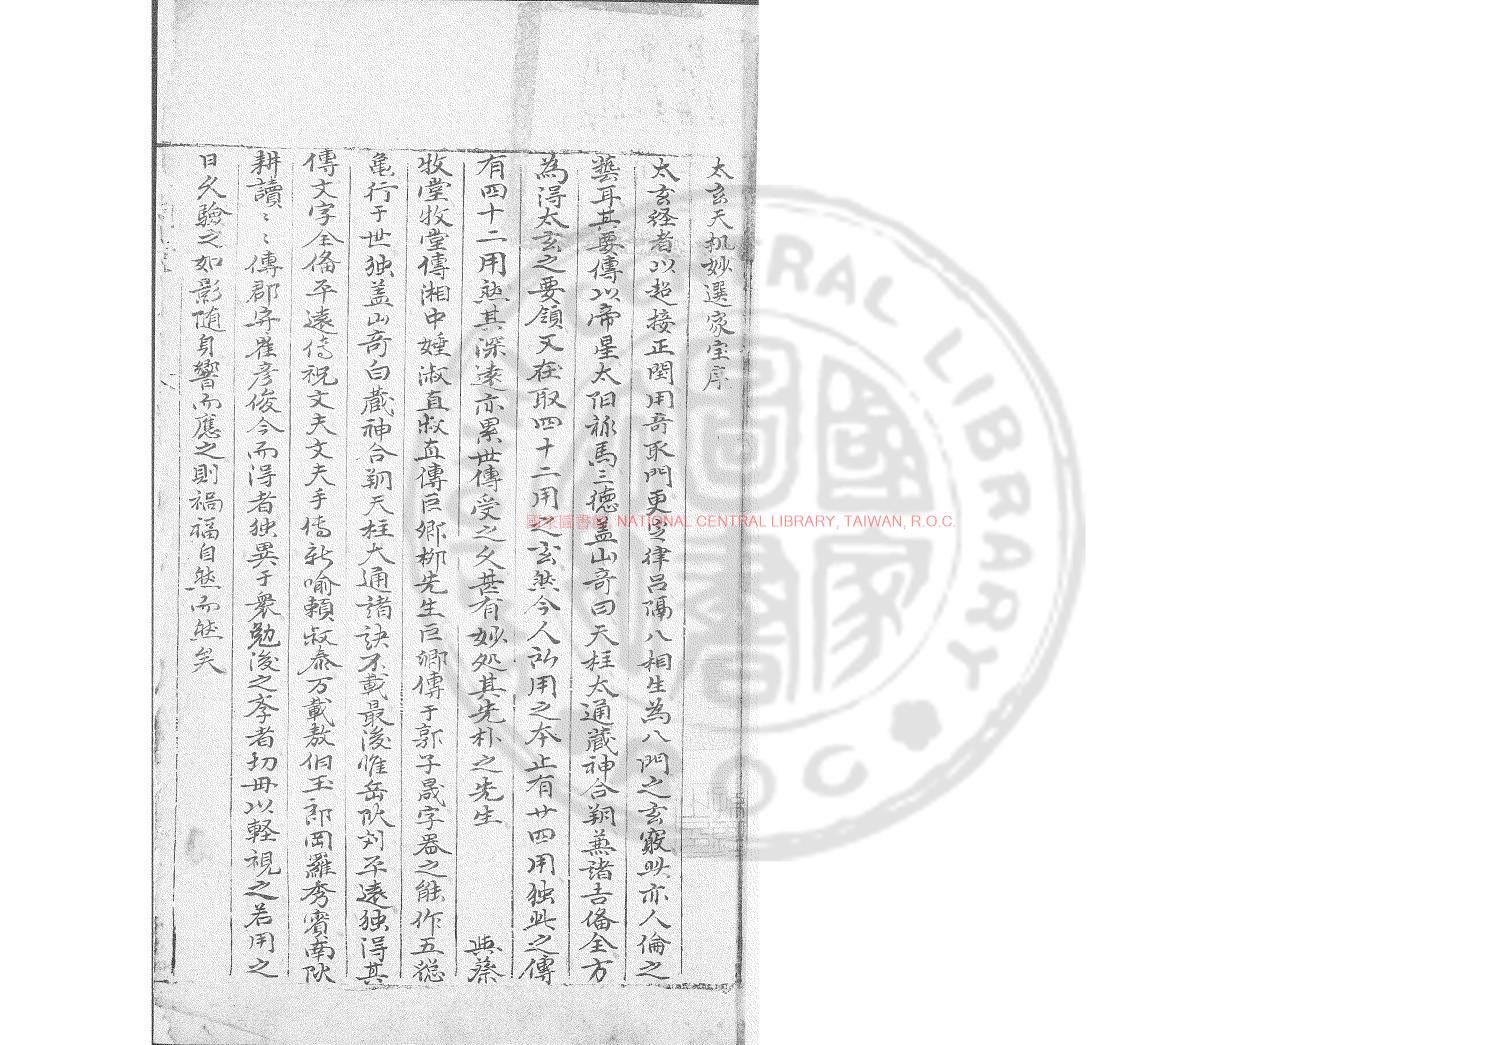 太玄天机妙選家宝序
太玄経者以超接正閏用奇取門更定律吕隔八相生為八門之玄竅此亦人倫之
藝耳其要傳以帝星太阳祿馬三德盖山奇曰天柱太通藏神合朔兼諸吉俻全方
為得太玄之要領又在取四十二用之玄然今人所用之本止有廿四用独此之傳
有四十二用然其深遠亦累世傳受之久甚有妙処其先朴之先生 典蔡
牧堂牧堂傳湘中 淑直 直傳巨卿栁先生巨卿傳于郭子晟字器之能作五
亀行于世独盖山奇白藏神合朔天柱大通諸訣不載最後惟岳阦刘平遠独得其
傳文字全俻平遠傳祝文夫文夫手傳新喻頼叔泰万載敖伯玉郎岡羅秀賓南阦
耕讀〻〻傳郡 崔彦俊今而得者独異于衆勉後之斈者切毋以軽視之若用之
日久驗之如影随身響而應之則禍福自然而然矣
國家圖書館, NATIONAL CENTRAL LIBRARY, TAIWAN, R.O.C.
國家圖書館
CENTRAL LIBRARY
R.O.C.